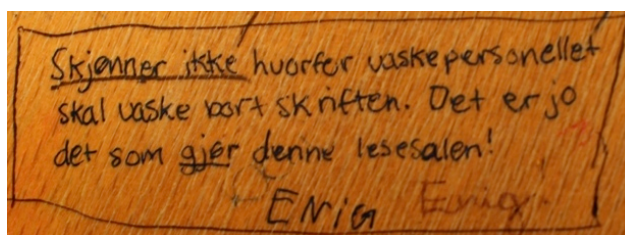 Skjønner ikke hvorfor vaskepersonellet
skal vaske bort skriften. Det er jo
det som gjør denne lesesalen!
ENiG Enig